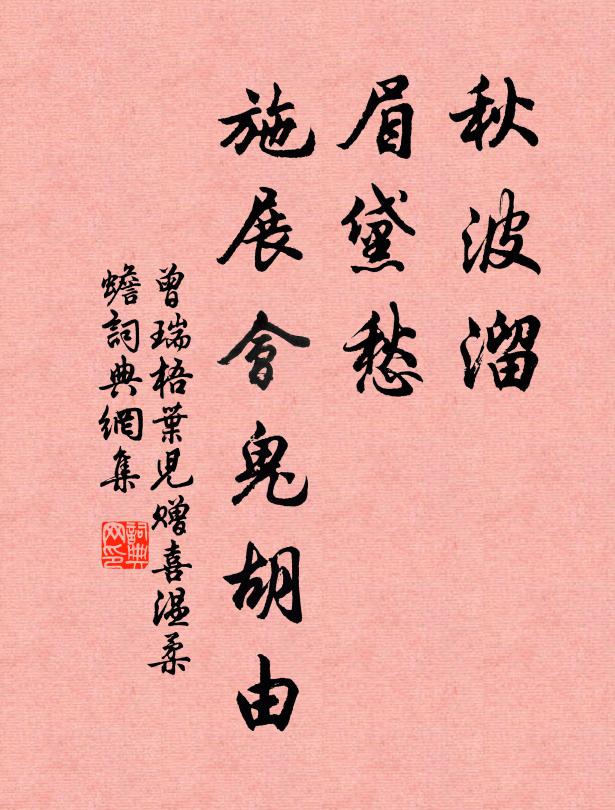 秋波溜
眉黛愁
施展會鬼胡由
曾瑞梧葉兒贈喜溫柔
蟾詞典網集
詞典
网印